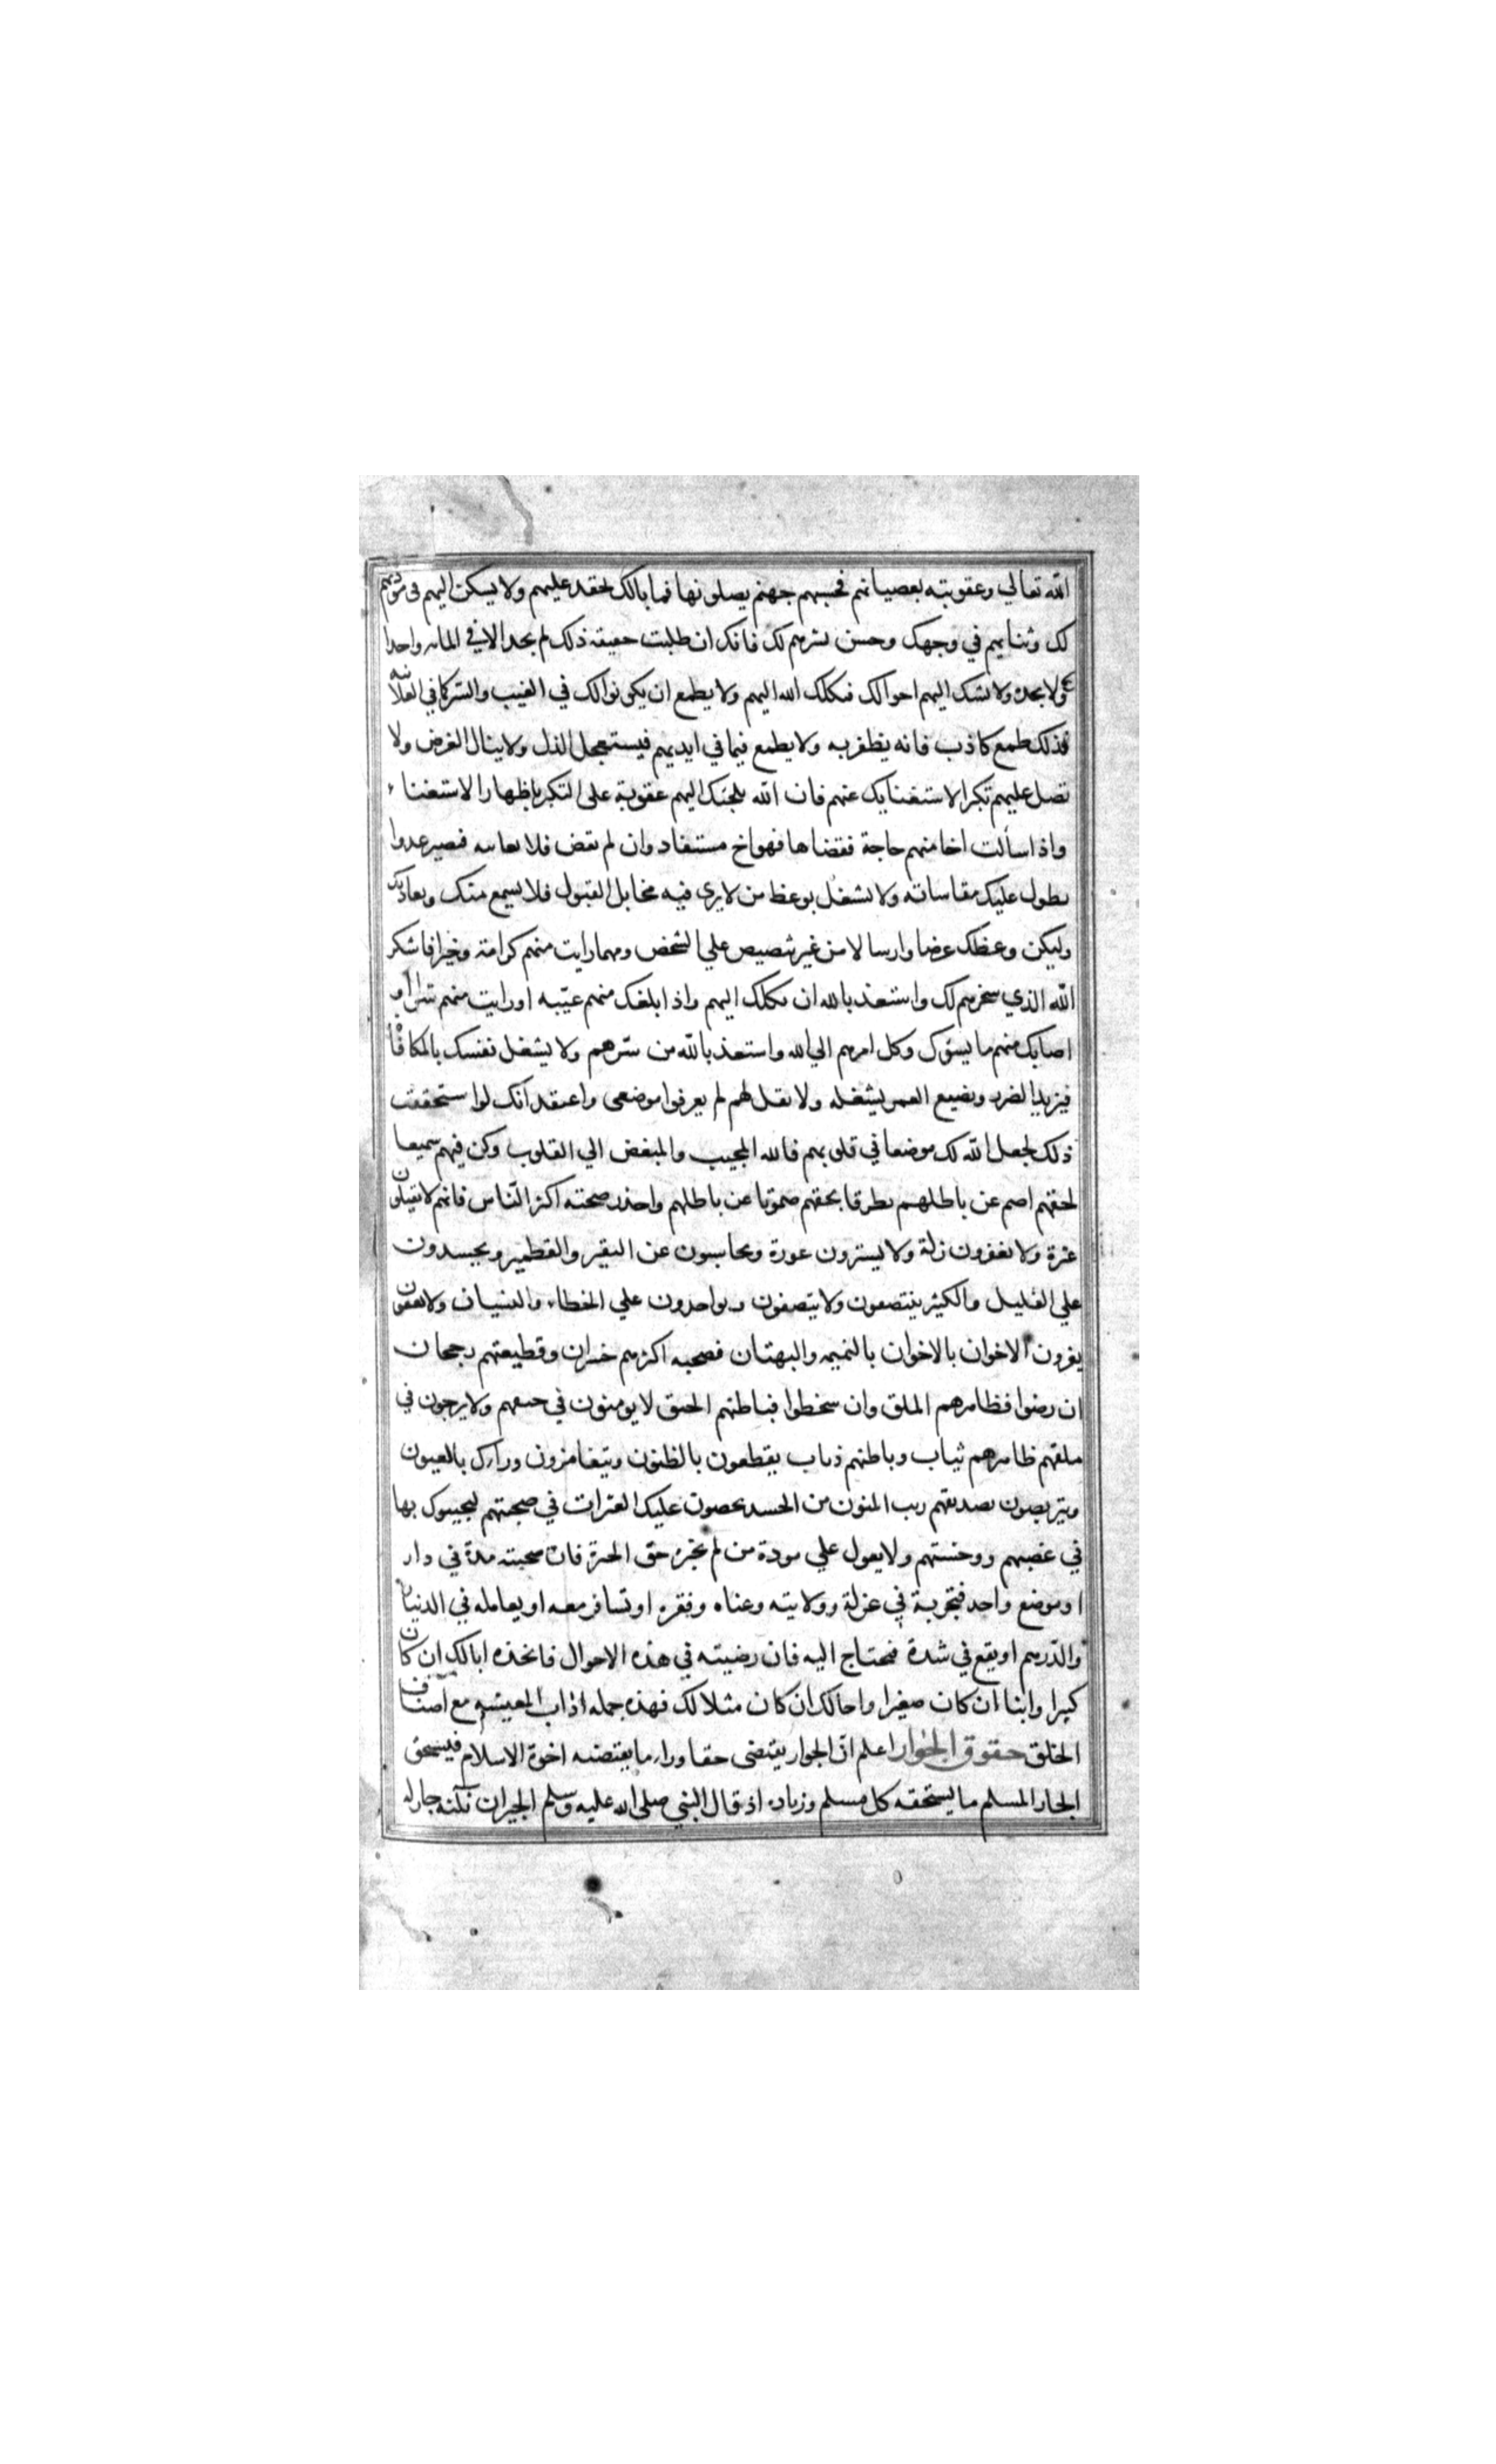 الله تعالي وعقوبته بعصيانهم فحسبهم جهنم يصلونها فما بالك تحقد عليهم ولا يسكن اليهم فى مودتهم
لك وثنايهم في وجهك وحسن بشرهم لك فانك ان طلبت حقيقة ذلك لم تجد الا في المايه واحدا
ولا تجده ولا تشك اليهم احوالك فيكلك الله اليهم ولا يطمع ان يكونوا لك في الغيب والسر كما في العلانيه
فذلك طمع كاذب فانه يظفر به ولا يطمع فيما في ايديهم فيستعجل الذل ولا ينال الغرض ولا
تصل عليهم تكبرا لاستغنايك عنهم فان الله يلجئك اليهم عقوبة على التكبر باظهار الاستغناء
واذا سألت اخا منهم حاجة فقضاها فهو اخ مستفاد وان لم يقض فلا تعاتبه فيصير عدوا
يطول عليك مقاساته ولا تشغل بوعظ من لا يرى فيه مخايل القبول فلا يسمع منك ويعاديك
وليكن وعظك عرضا وارسالا من غير تنصيص علي الشخص ومهما رايت منهم كرامة وخيرا فاشكر
الله الذي سخرهم لك واستعذ بالله ان يكلك اليهم واذا بلغك منهم غيبه او رايت منهم شرا او
اصابك منهم ما يسؤك وكل امرهم الي الله واستعذ بالله من شرهم ولا يشغل نفسك بالمكافأة
فيزيد الضرر ويضيع العمر بشغله ولا تقل لهم لم يعرفوا موضعى واعتقد انك لو استحققت
ذلك لجعل الله لك موضعا في قلوبهم فالله المحبب والمبغض الي القلوب وكن فيهم سميعا
لحقهم اصم عن باطلهم نطوقا بحقهم صموتا عن باطلهم واحذر صحبته اكثر الناس فانهم لا يقيلون
عثرة ولا يغفرون زلة ولا يسترون عورة ويحاسبون عن النقير والقطمير ويحسدون
علي القليل والكثير ينتصفون ولا ينصفون ويواخذون علي الخطاء والنسيان ولا يعفون
يغرون الاخوان بالاخوان بالنميمه والبهتان فصحبه اكثرهم خسران وقطيعتهم رجحان
ان رضوا فظاهرهم الملق وان سخطوا فباطنهم الحنق لا يومنون في حنقهم ولا يرجون في
ملقهم ظاهرهم ثياب وباطنهم ذياب يقطعون بالظنون ويتغامزون وراك بالعيون
ويتربصون بصديقهم ريب المنون من الحسد يحصون عليك العثرات في صحبتهم ليجيبوك بها
في غضبهم ووحشتهم ولا يعول علي مودة من لم تخبره حق الخبرة فان صحبته مدة في دار
او موضع واحد فتجربة في عزلة وولايته وغناه وفقره او تسافر معه او يعامله في الدنيار
والدرهم او يقع في شدة فتحتاج اليه فان رضيته في هذه الاحوال فاتخذه ابالك ان كان
كبيرا وابنا ان كان صغيرا واخالك ان كان مثلا لك فهذه جمله اداب المعيشه مع اصناف
الخلق حقوق الجوار اعلم ان الجوار يقتضى حقا وراء ما يقتضيه اخوة الاسلام فيستحق
الجار المسلم ما يستحقه كل مسلم وزياده اذ قال النبي صلى الله عليه وسلم الجيران ثلثه جار له